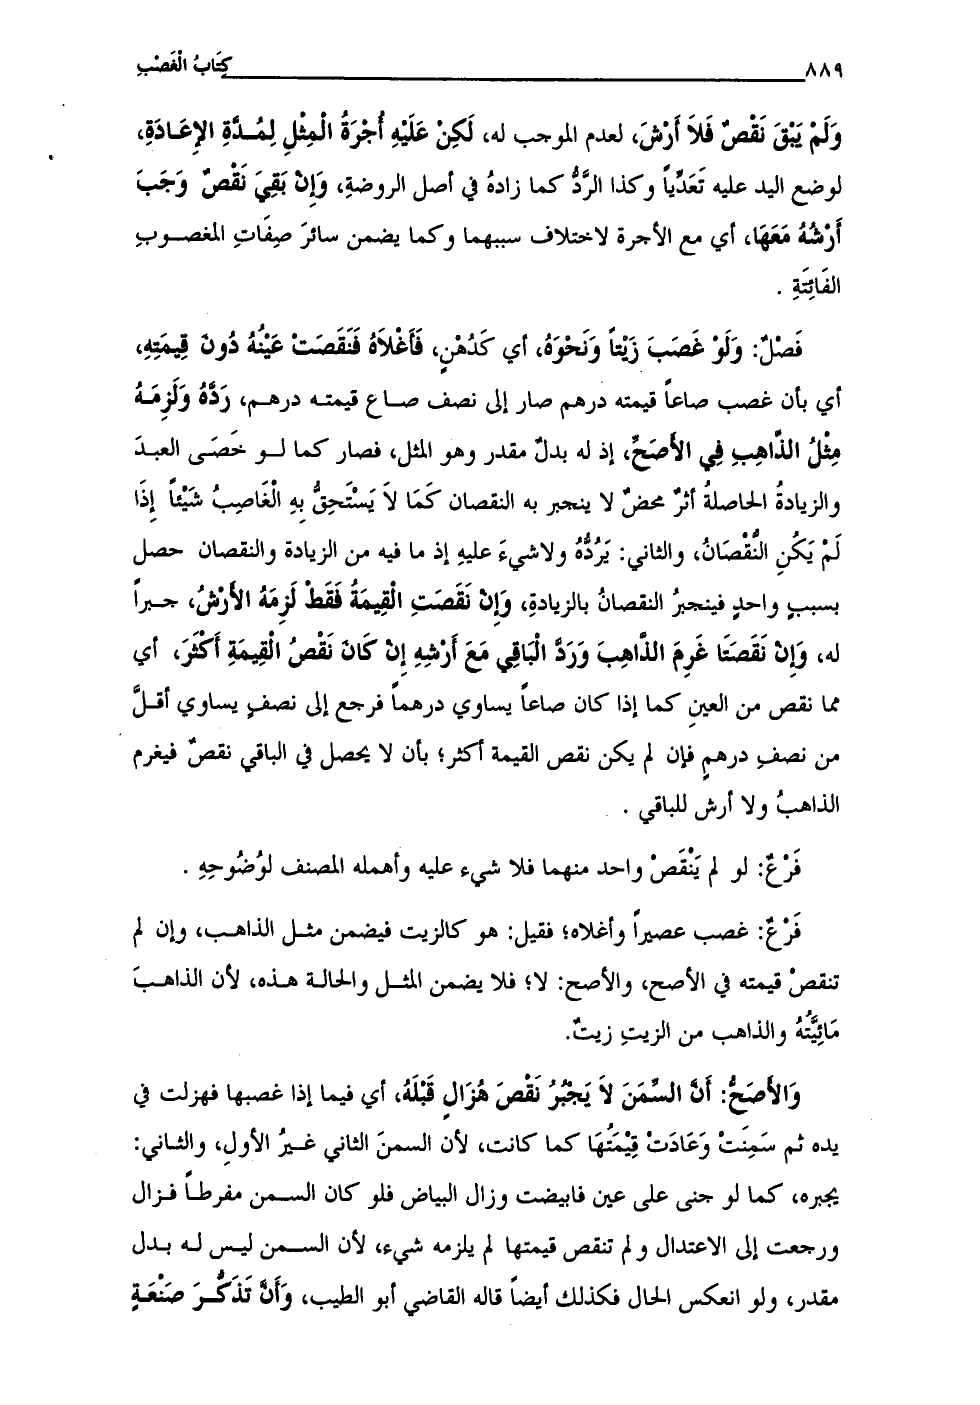 ٨٨٩ كِتَابُ الْغَصْبِ
وَلَمْ يَبْقَ نَقْصٌ فَلاَ أَرْشَ، لعدم الموجب له، لَكِنْ عَلَيْهِ أُجْرَةُ الْمِثْلِ لِمُدَّةِ الإِعَادَةِ،
لوضع اليد عليه تَعَدِّياً وكذا الرَّدُّ كما زادهُ في أصل الروضةِ، وَإِنْ بَقِيَ نَقْصٌ وَجَبَ
أَرْشُهُ مَعَهَا، أي مع الأجرة لاختلاف سببهما وكما يضمن سائرَ صِفَاتِ المغصوبِ
الفَائِتَةِ .
فَصْلٌ: وَلَوْ غَصَبَ زَيْتاً وَنَحْوَهُ، أي كَدُهْنٍ، فَأَغْلاَهُ فَنَقَصَتْ عَيْنُهُ دُونَ قِيمَتِهِ،
أي بأن غصب صاعاً قيمته درهم صار إلى نصف صاع قيمته درهم، رَدَّهُ وَلَزِمَهُ
مِثْلُ الذَّاهِبِ فِي الأَصَحِّ، إذ له بدلٌ مقدر وهو المثل، فصار كما لو خَصَى العبدَ
والزيادةُ الحاصلةُ أثرٌ محضٌ لا ينجبر به النقصان كَمَا لاَ يَسْتَحِقُّ بِهِ الْغَاصِبُ شَيْئاً إِذَا
لَمْ يَكُنِ النُّقْصَانُ، والثاني: يَرُدُّهُ ولاشيءَ عليهِ إذ ما فيه من الزيادة والنقصان حصل
بسببٍ واحدٍ فينجبرُ النقصانُ بالزيادةِ، وَإِنْ نَقَصَتِ الْقِيمَةُ فَقَطْ لَزِمَهُ الأَرْشُ، جبراً
له، وَإِنْ نَقَصَتَا غَرِمَ الذَّاهِبَ وَرَدَّ الْبَاقِي مَعَ أَرْشِهِ إِنْ كَانَ نَقْصُ الْقِيمَةِ أَكْثَرَ، أي
مما نقص من العينِ كما إذا كان صاعاً يساوي درهماً فرجع إلى نصفٍ يساوي أقلَّ
من نصفِ درهمٍ فإن لم يكن نقص القيمة أكثر؛ بأن لا يحصل في الباقي نقصٌ فيغرم
الذاهبُ ولا أرش للباقي .
فَرْعٌ: لو لم يَنْقَصْ واحد منهما فلا شيء عليه وأهمله المصنف لوُضُوحِهِ .
فَرْعٌ: غصب عصيراً وأغلاه؛ فقيل: هو كالزيت فيضمن مثل الذاهب، وإن لم
تنقصْ قيمته في الأصح، والأصح: لا؛ فلا يضمن المثل والحالة هذه، لأن الذاهبَ
مَائِيَّتُهُ والذاهب من الزيتِ زيتٌ.
وَالأَصَحُّ: أَنَّ السِّمَنَ لاَ يَجْبُرُ نَقْصَ هُزَالٍ قَبْلَهُ، أي فيما إذا غصبها فهزلت في
يده ثم سَمِنَتْ وَعَادَتْ قِيْمَتُهَا كما كانت، لأن السمنَ الثاني غيرُ الأولِ، والثاني:
يجبره، كما لو جنى على عين فابيضت وزال البياض فلو كان السمن مفرطاً فزال
ورجعت إلى الاعتدال ولم تنقص قيمتها لم يلزمه شيء، لأن السمن ليس له بدل
مقدر، ولو انعكس الحال فكذلك أيضاً قاله القاضي أبو الطيب، وَأَنَّ تَذَكُّرَ صَنْعَةٍ